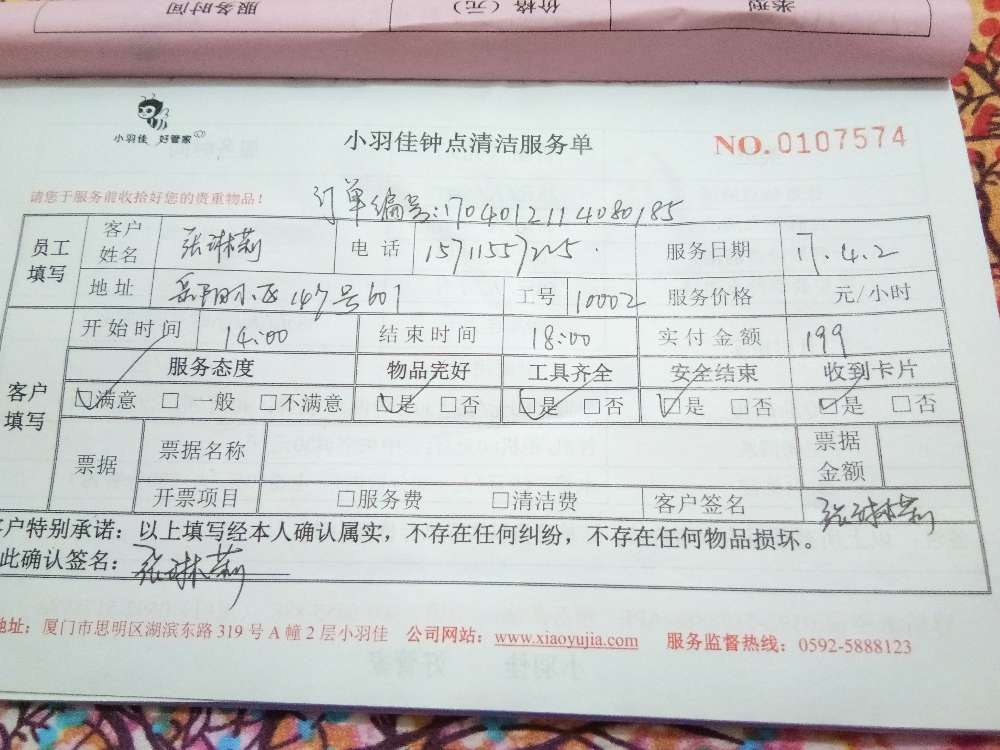 类型 价格（元） 服务时间
小羽佳 好管家
小羽佳钟点清洁服务单
NO.0107574
请您于服务前收拾好您的贵重物品！
订单编号:1704012114080185
员工填写 客户姓名 张琳莉 电话 15711557225 服务日期 17.4.2
地址 岳阳小区147号601 工号 10002 服务价格 元/小时
客户填写 开始时间 14:00 结束时间 18:00 实付金额 199
服务态度 物品完好 工具齐全 安全结束 收到卡片
☑满意 □一般 □不满意 ☑是 □否 ☑是 □否 ☑是 □否 ☑是 □否
票据 票据名称 票据金额
开票项目 □服务费 □清洁费 客户签名 张琳莉
客户特别承诺：以上填写经本人确认属实，不存在任何纠纷，不存在任何物品损坏。
此确认签名：张琳莉
地址：厦门市思明区湖滨东路319号A幢2层小羽佳 公司网站：www.xiaoyujia.com 服务监督热线：0592-5888123